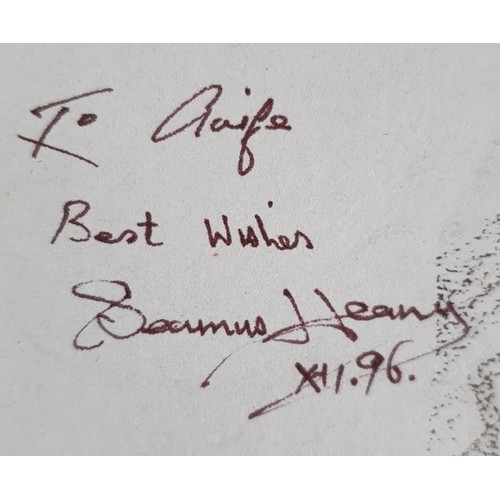 To Aoife
Best Wishes
Seamus Heaney
XII.96.